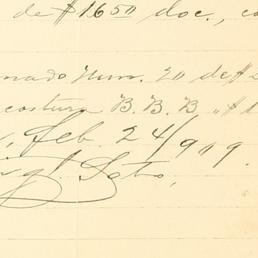 de $1650 doc., co
mado Num. 20 de $
costura B. B. B „ $1
, feb. 24/909.
Soto,